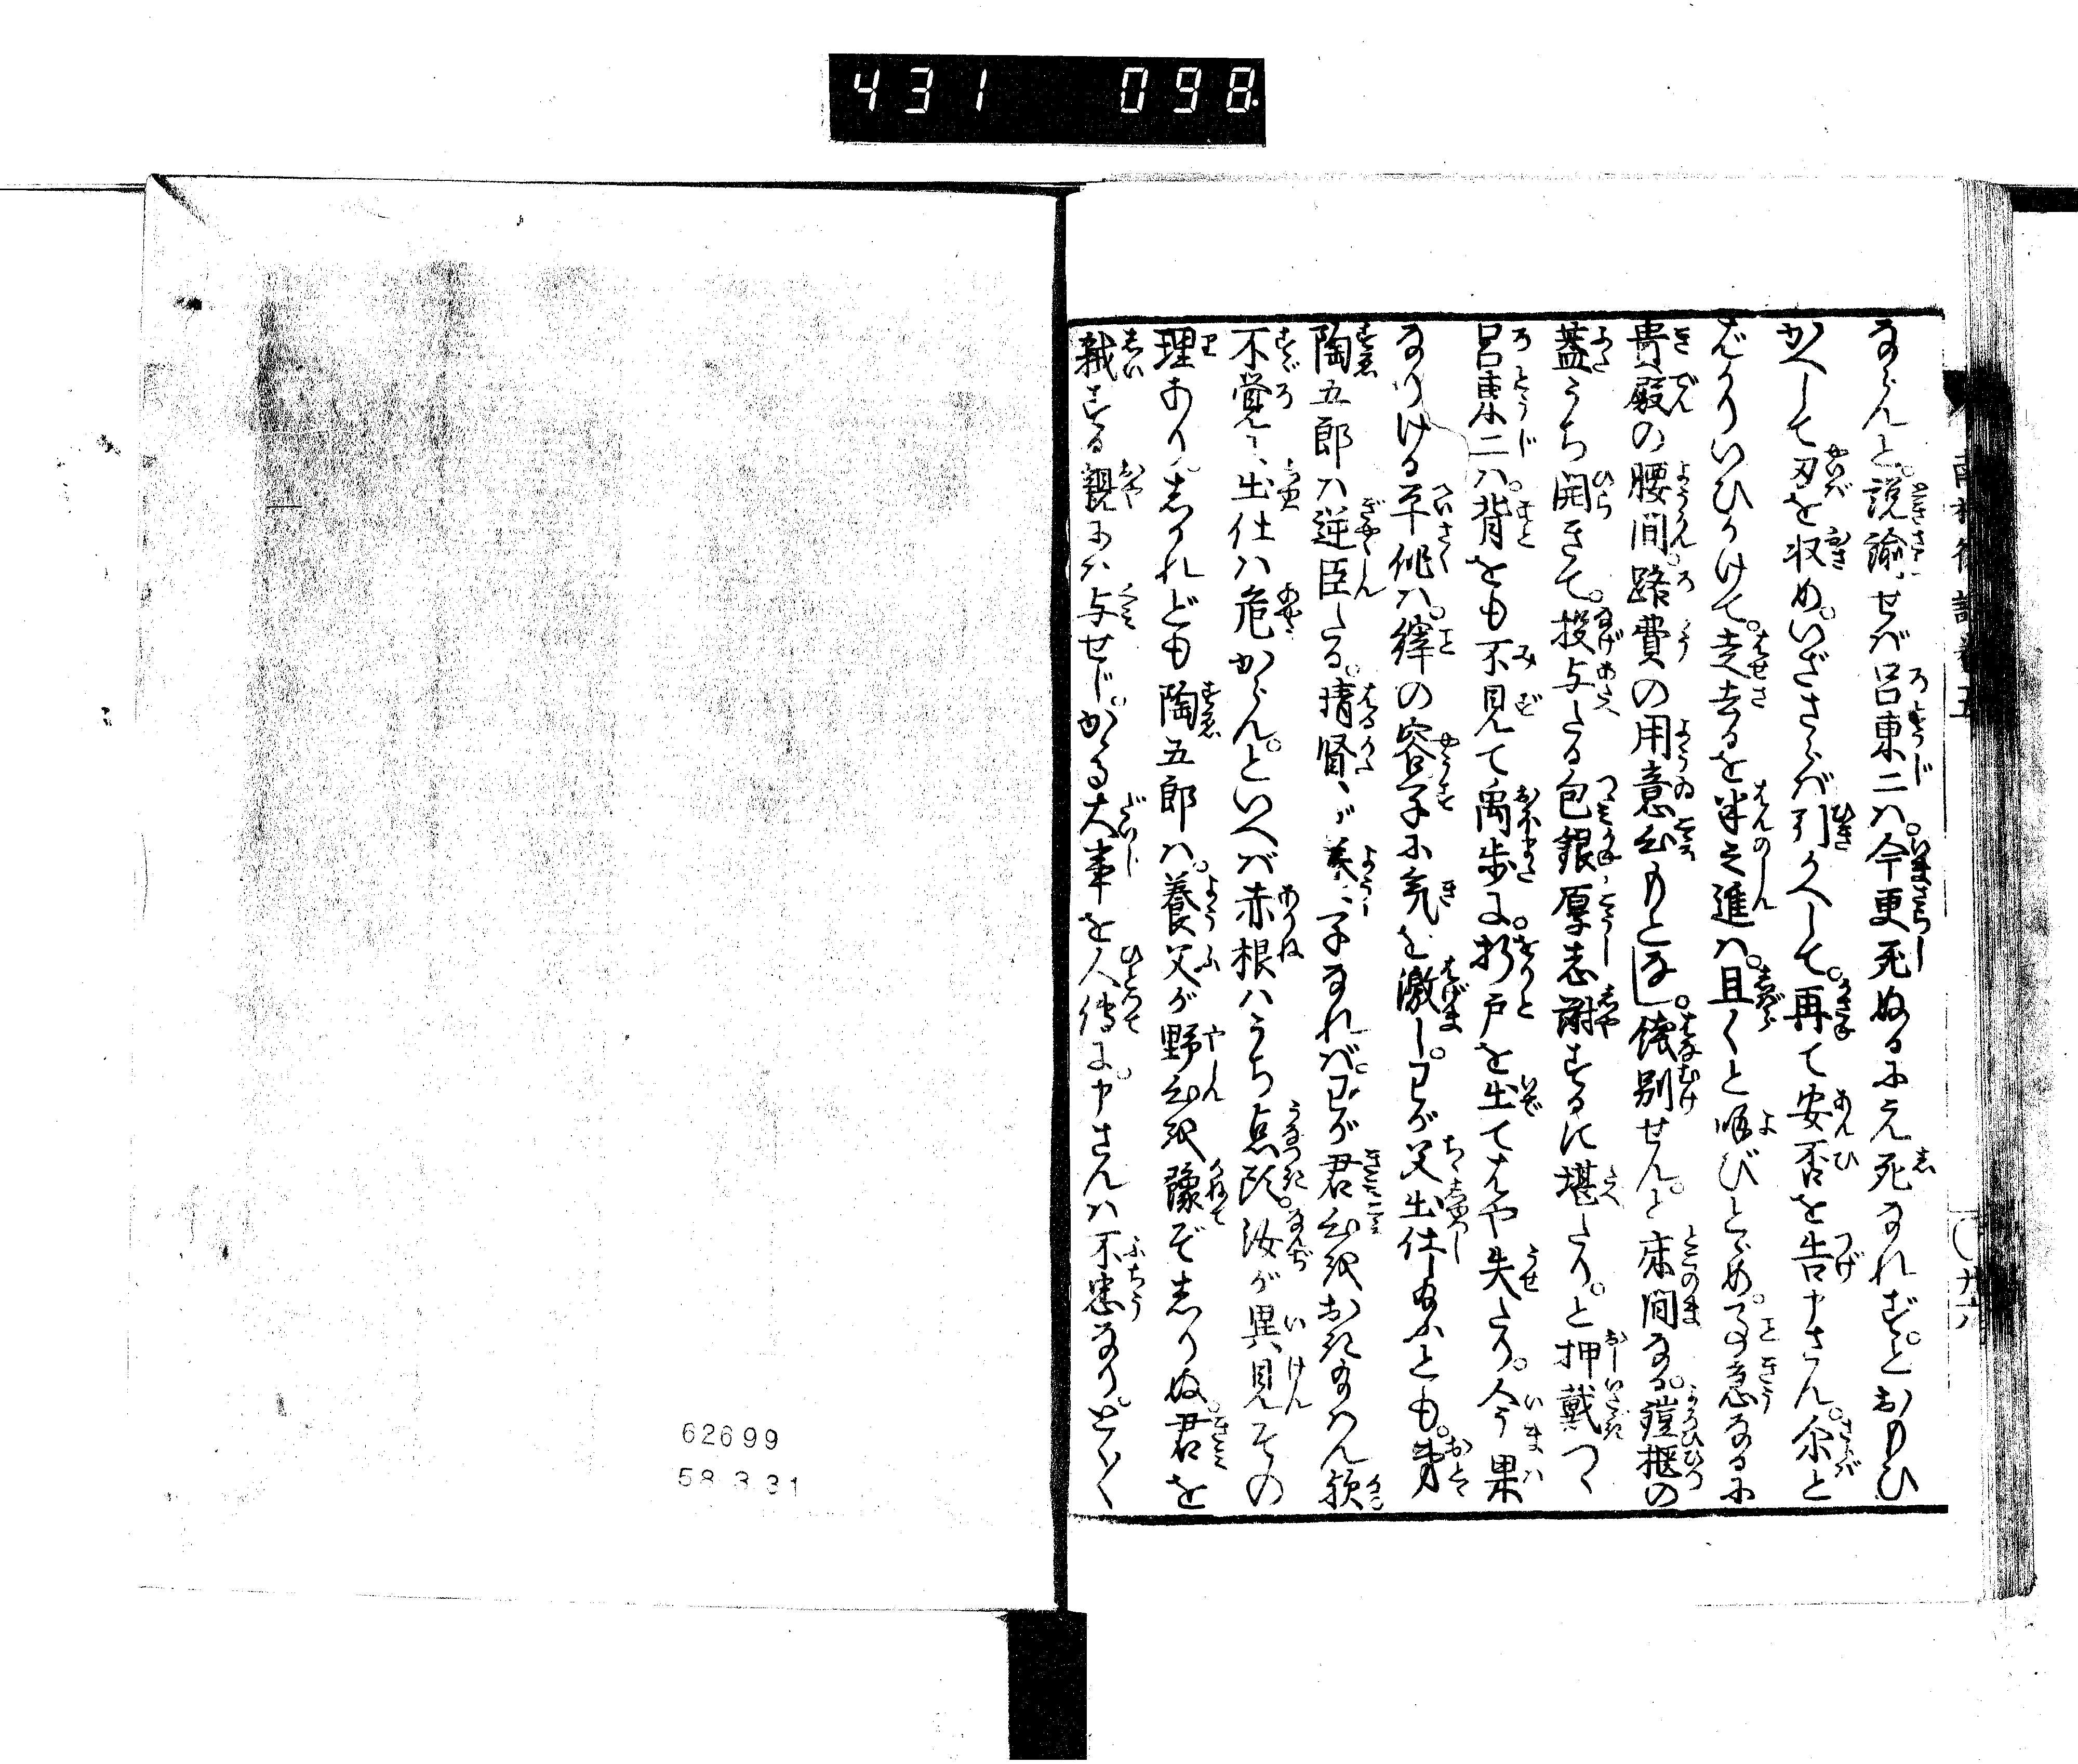 431 098
ならんと。説諭せば呂東二ハ。今更死ぬるにえ死なれず。とおもひ
かへして刃を収め。いざさらバ引かへして。再て安否を告申さん。尓と
ばかりいひかけて。走去るを半之進ハ。且くと呼びとゞめ。事急なるに
貴殿の腰間。路費の用意心もとなし。餞別せん。と床間なる。鎧櫃の
蓋うち開きて。投与たる包銀厚志謝するに堪たり。と押戴つゝ
呂東二ハ。背をも不見て禹歩に。折戸を出てはや失たり。今ハ果
なりける平作ハ。縡の容子に気を激し。わが父出仕し給ふとも。弟
陶五郎ハ逆臣たる。晴賢が養子なれバ。わが君心おき給ハん歟
不覚に出仕ハ危からん。といへバ赤根ハうち点頭。汝が異見その
理あり。しかれども陶五郎ハ。養父が野心を豫ぞしりぬ。君を
弑する親にハ与せじ。かゝる大事を人傳に。申さんハ不忠なり。とく〱
五
62699
58 3 31